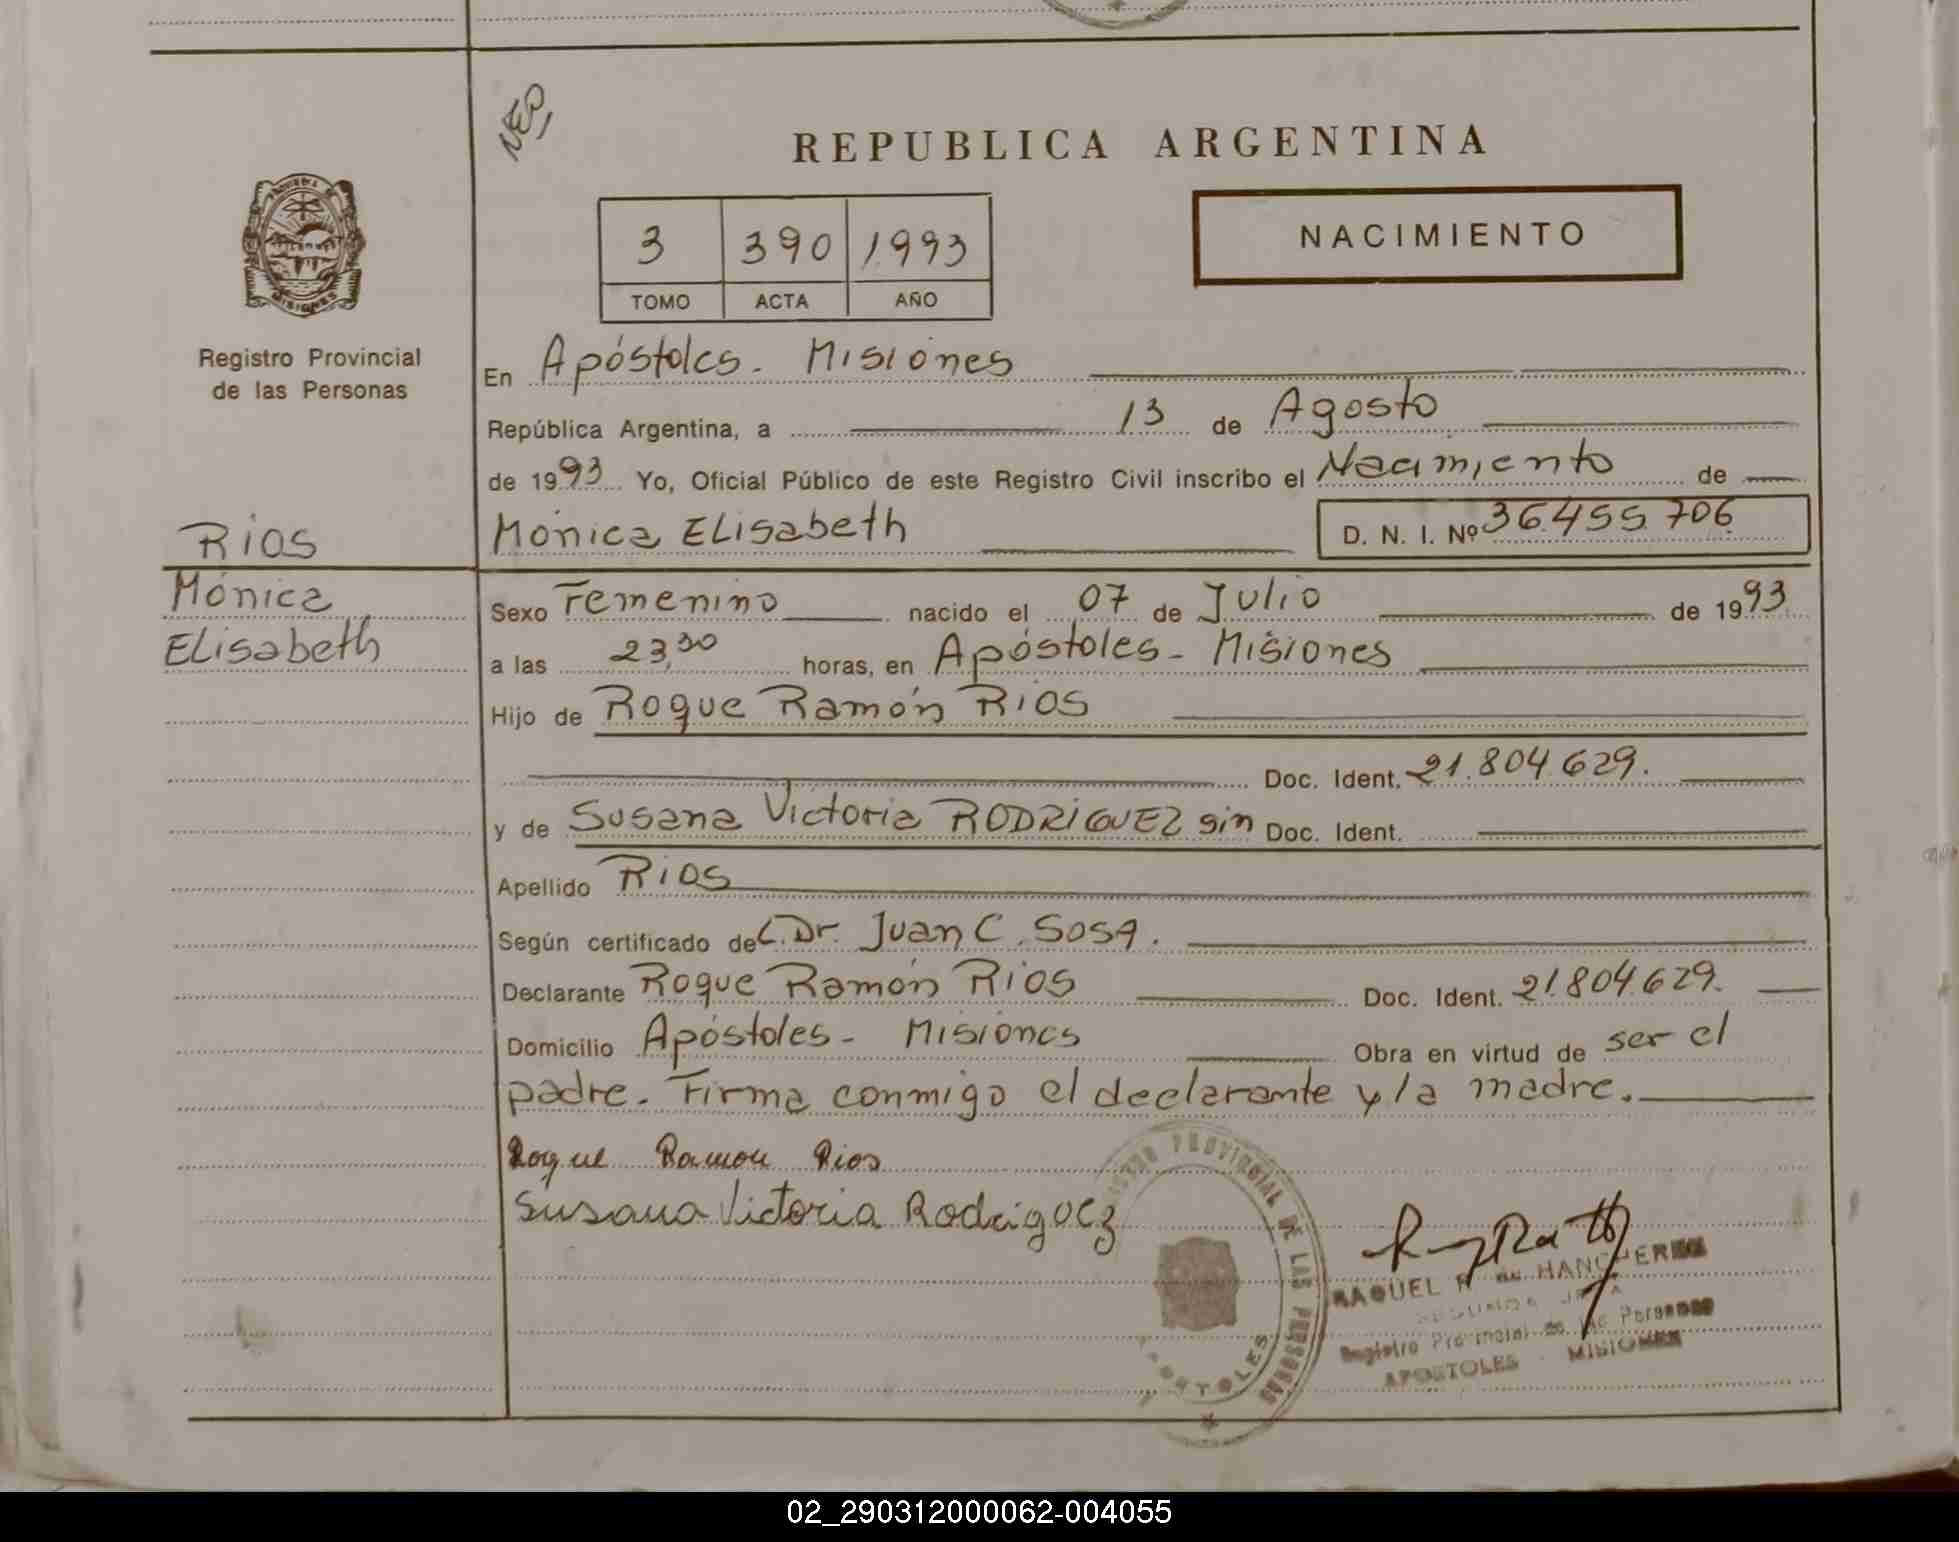 NEP,
REPUBLICA ARGENTINA
3 390 1993
TOMO ACTA AÑO
NACIMIENTO
MISIONES
Registro Provincial
de las Personas
En Apóstoles - Misiones
República Argentina, a 13 de Agosto
de 1993 Yo, Oficial Público de este Registro Civil inscribo el Nacimiento de
Mónica ELisabeth D. N. I. Nº 36.455.706
RIOS
Mónica
ELisabeth
Sexo Femenino nacido el 07 de Julio de 1993
a las 23,30 horas, en Apóstoles - Misiones
Hijo de Roque Ramón RIOS
Doc. Ident. 21.804.629.
y de Susana Victoria RODRIGUEZ sin Doc. Ident.
Apellido RIOS
Según certificado de L. Dr. Juan C. SOSA.
Declarante Roque Ramón RIOS Doc. Ident. 21.804.629.
Domicilio Apóstoles - Misiones Obra en virtud de ser el
padre. Firma conmigo el declarante y la madre.
Roque Ramon Rios
Susana Victoria Rodriguez
REGISTRO PROVINCIAL DE LAS PERSONAS
APOSTOLES
RAQUEL R. de
Registro Provincial de las Personas
APOSTOLES - MISIONES
02_290312000062-004055